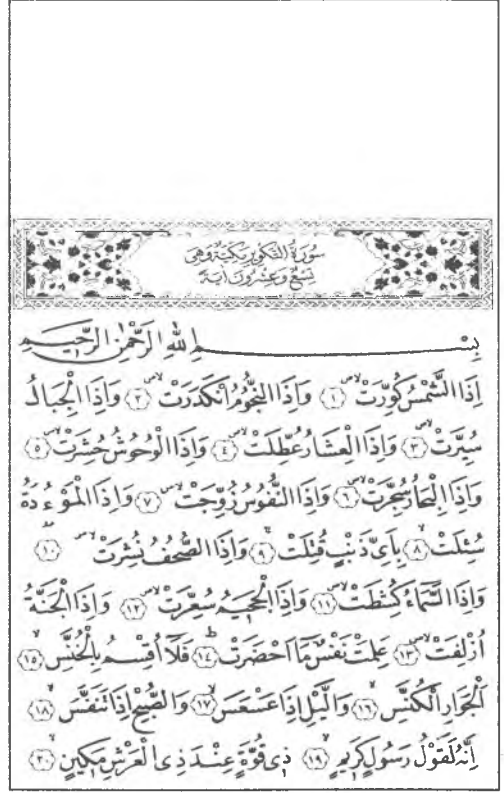 سُورَةُ التَّكْوِيرِ مَكِّيَّةٌ وَهِيَ
تِسْعٌ وَعِشْرُونَ آيَةً
بِسْمِ اللّٰهِ الرَّحْمٰنِ الرَّحِيمِ
اِذَا الشَّمْسُ كُوِّرَتْ ۙ ﴿١﴾ وَاِذَا النُّجُومُ انْكَدَرَتْ ۙ ﴿٢﴾ وَاِذَا الْجِبَالُ
سُيِّرَتْ ۙ ﴿٣﴾ وَاِذَا الْعِشَارُ عُطِّلَتْ ۙ ﴿٤﴾ وَاِذَا الْوُحُوشُ حُشِرَتْ ۙ ﴿٥﴾
وَاِذَا الْبِحَارُ سُجِّرَتْ ۙ ﴿٦﴾ وَاِذَا النُّفُوسُ زُوِّجَتْ ۙ ﴿٧﴾ وَاِذَا الْمَوْءُدَةُ
سُئِلَتْ ۙ ﴿٨﴾ بِاَيِّ ذَنْبٍ قُتِلَتْ ۚ ﴿٩﴾ وَاِذَا الصُّحُفُ نُشِرَتْ ۙ ﴿١٠﴾
وَاِذَا السَّمَاءُ كُشِطَتْ ۙ ﴿١١﴾ وَاِذَا الْجَحِيمُ سُعِّرَتْ ۙ ﴿١٢﴾ وَاِذَا الْجَنَّةُ
اُزْلِفَتْ ۙ ﴿١٣﴾ عَلِمَتْ نَفْسٌ مَا اَحْضَرَتْ ۜ ﴿١٤﴾ فَلَا اُقْسِمُ بِالْخُنَّسِ ۙ ﴿١٥﴾
اَلْجَوَارِ الْكُنَّسِ ۙ ﴿١٦﴾ وَالَّيْلِ اِذَا عَسْعَسَ ۙ ﴿١٧﴾ وَالصُّبْحِ اِذَا تَنَفَّسَ ۙ ﴿١٨﴾
اِنَّهُ لَقَوْلُ رَسُولٍ كَرِيمٍ ۙ ﴿١٩﴾ ذِي قُوَّةٍ عِنْدَ ذِي الْعَرْشِ مَكِينٍ ۙ ﴿٢٠﴾